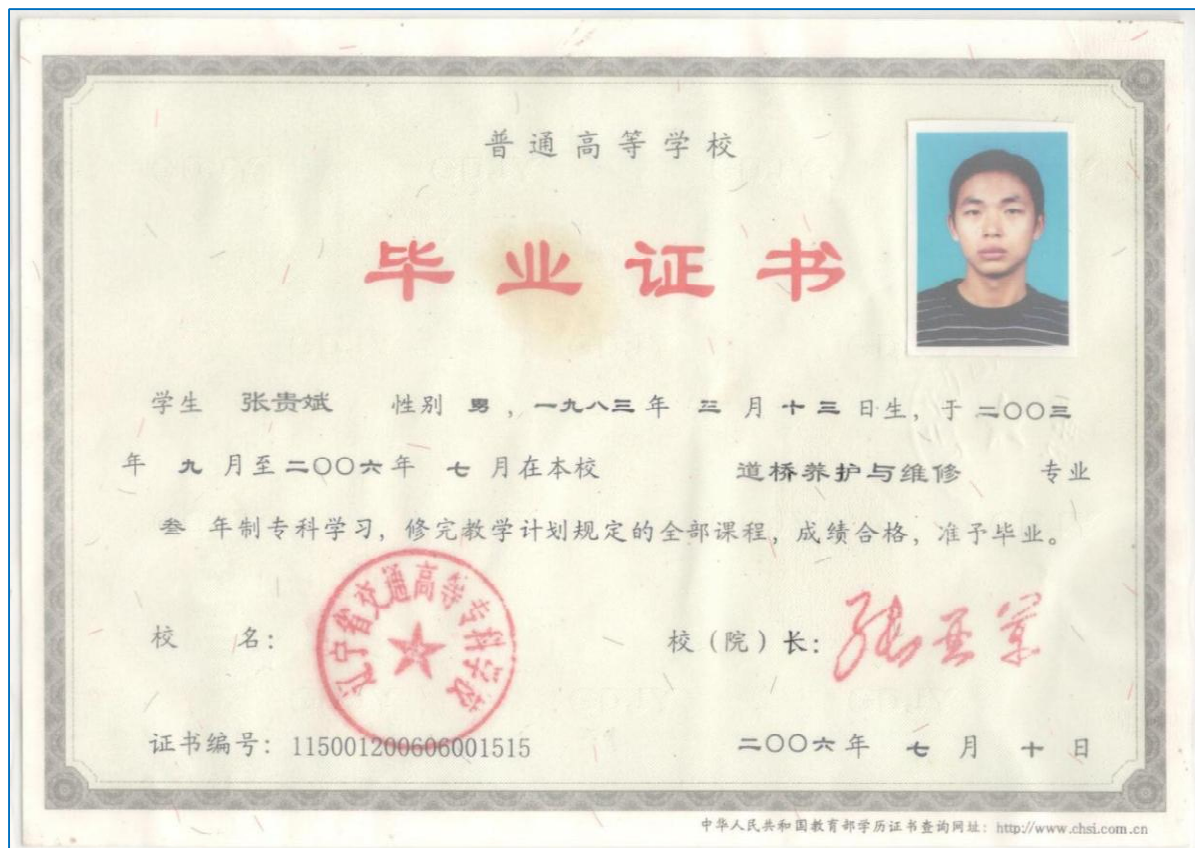 普通高等学校
毕业证书
学生 张贵斌 性别 男，一九八三年 三 月 十三日生，于 二〇〇三
年 九 月至二〇〇六年 七 月在本校 道桥养护与维修 专业
叁 年制专科学习，修完教学计划规定的全部课程，成绩合格，准予毕业。
辽宁省交通高等专科学校
校 名：
校（院）长：
证书编号：115001200606001515
二〇〇六年 七 月 十 日
中华人民共和国教育部学历证书查询网址：http://www.chsi.com.cn